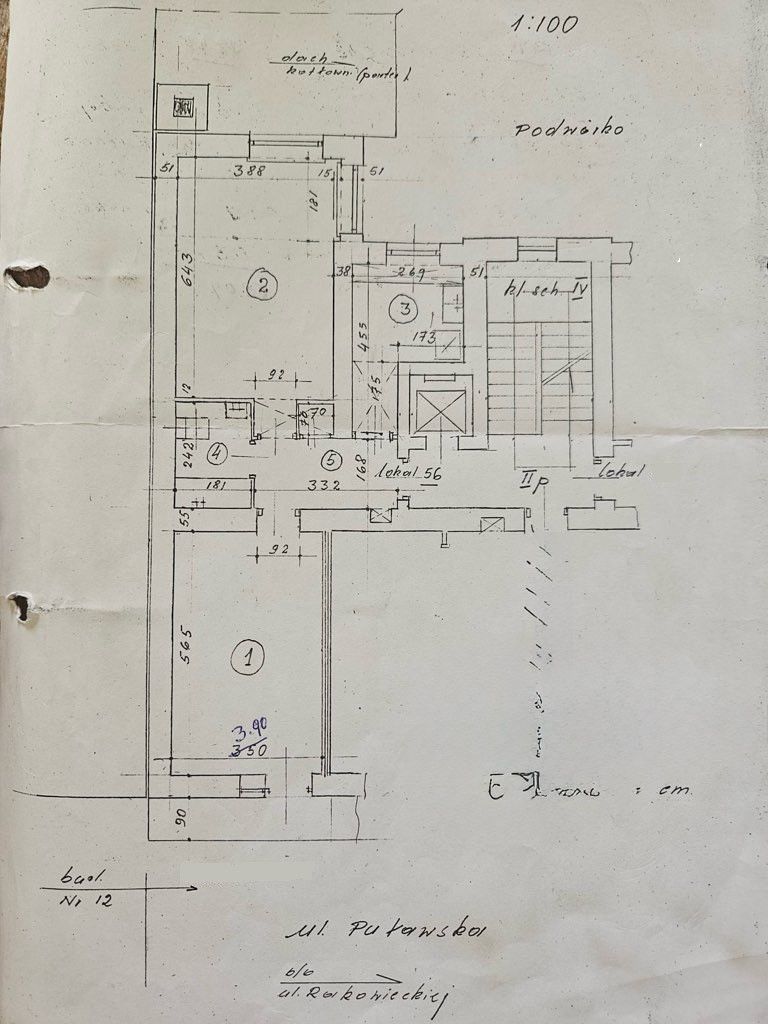 1:100
dach
kotłowni (parter)
Podwórko
51
388
15
51
181
643
38
269
51
2
3
kl. sch. IV
455
173
92
12
175
70
70
4
5
242
168
lokal 56
II p
lokal
181
332
55
92
565
1
3.90
350
cm
90
bud.
Nr 12
ul. Puławska
ul. Rakowieckiej